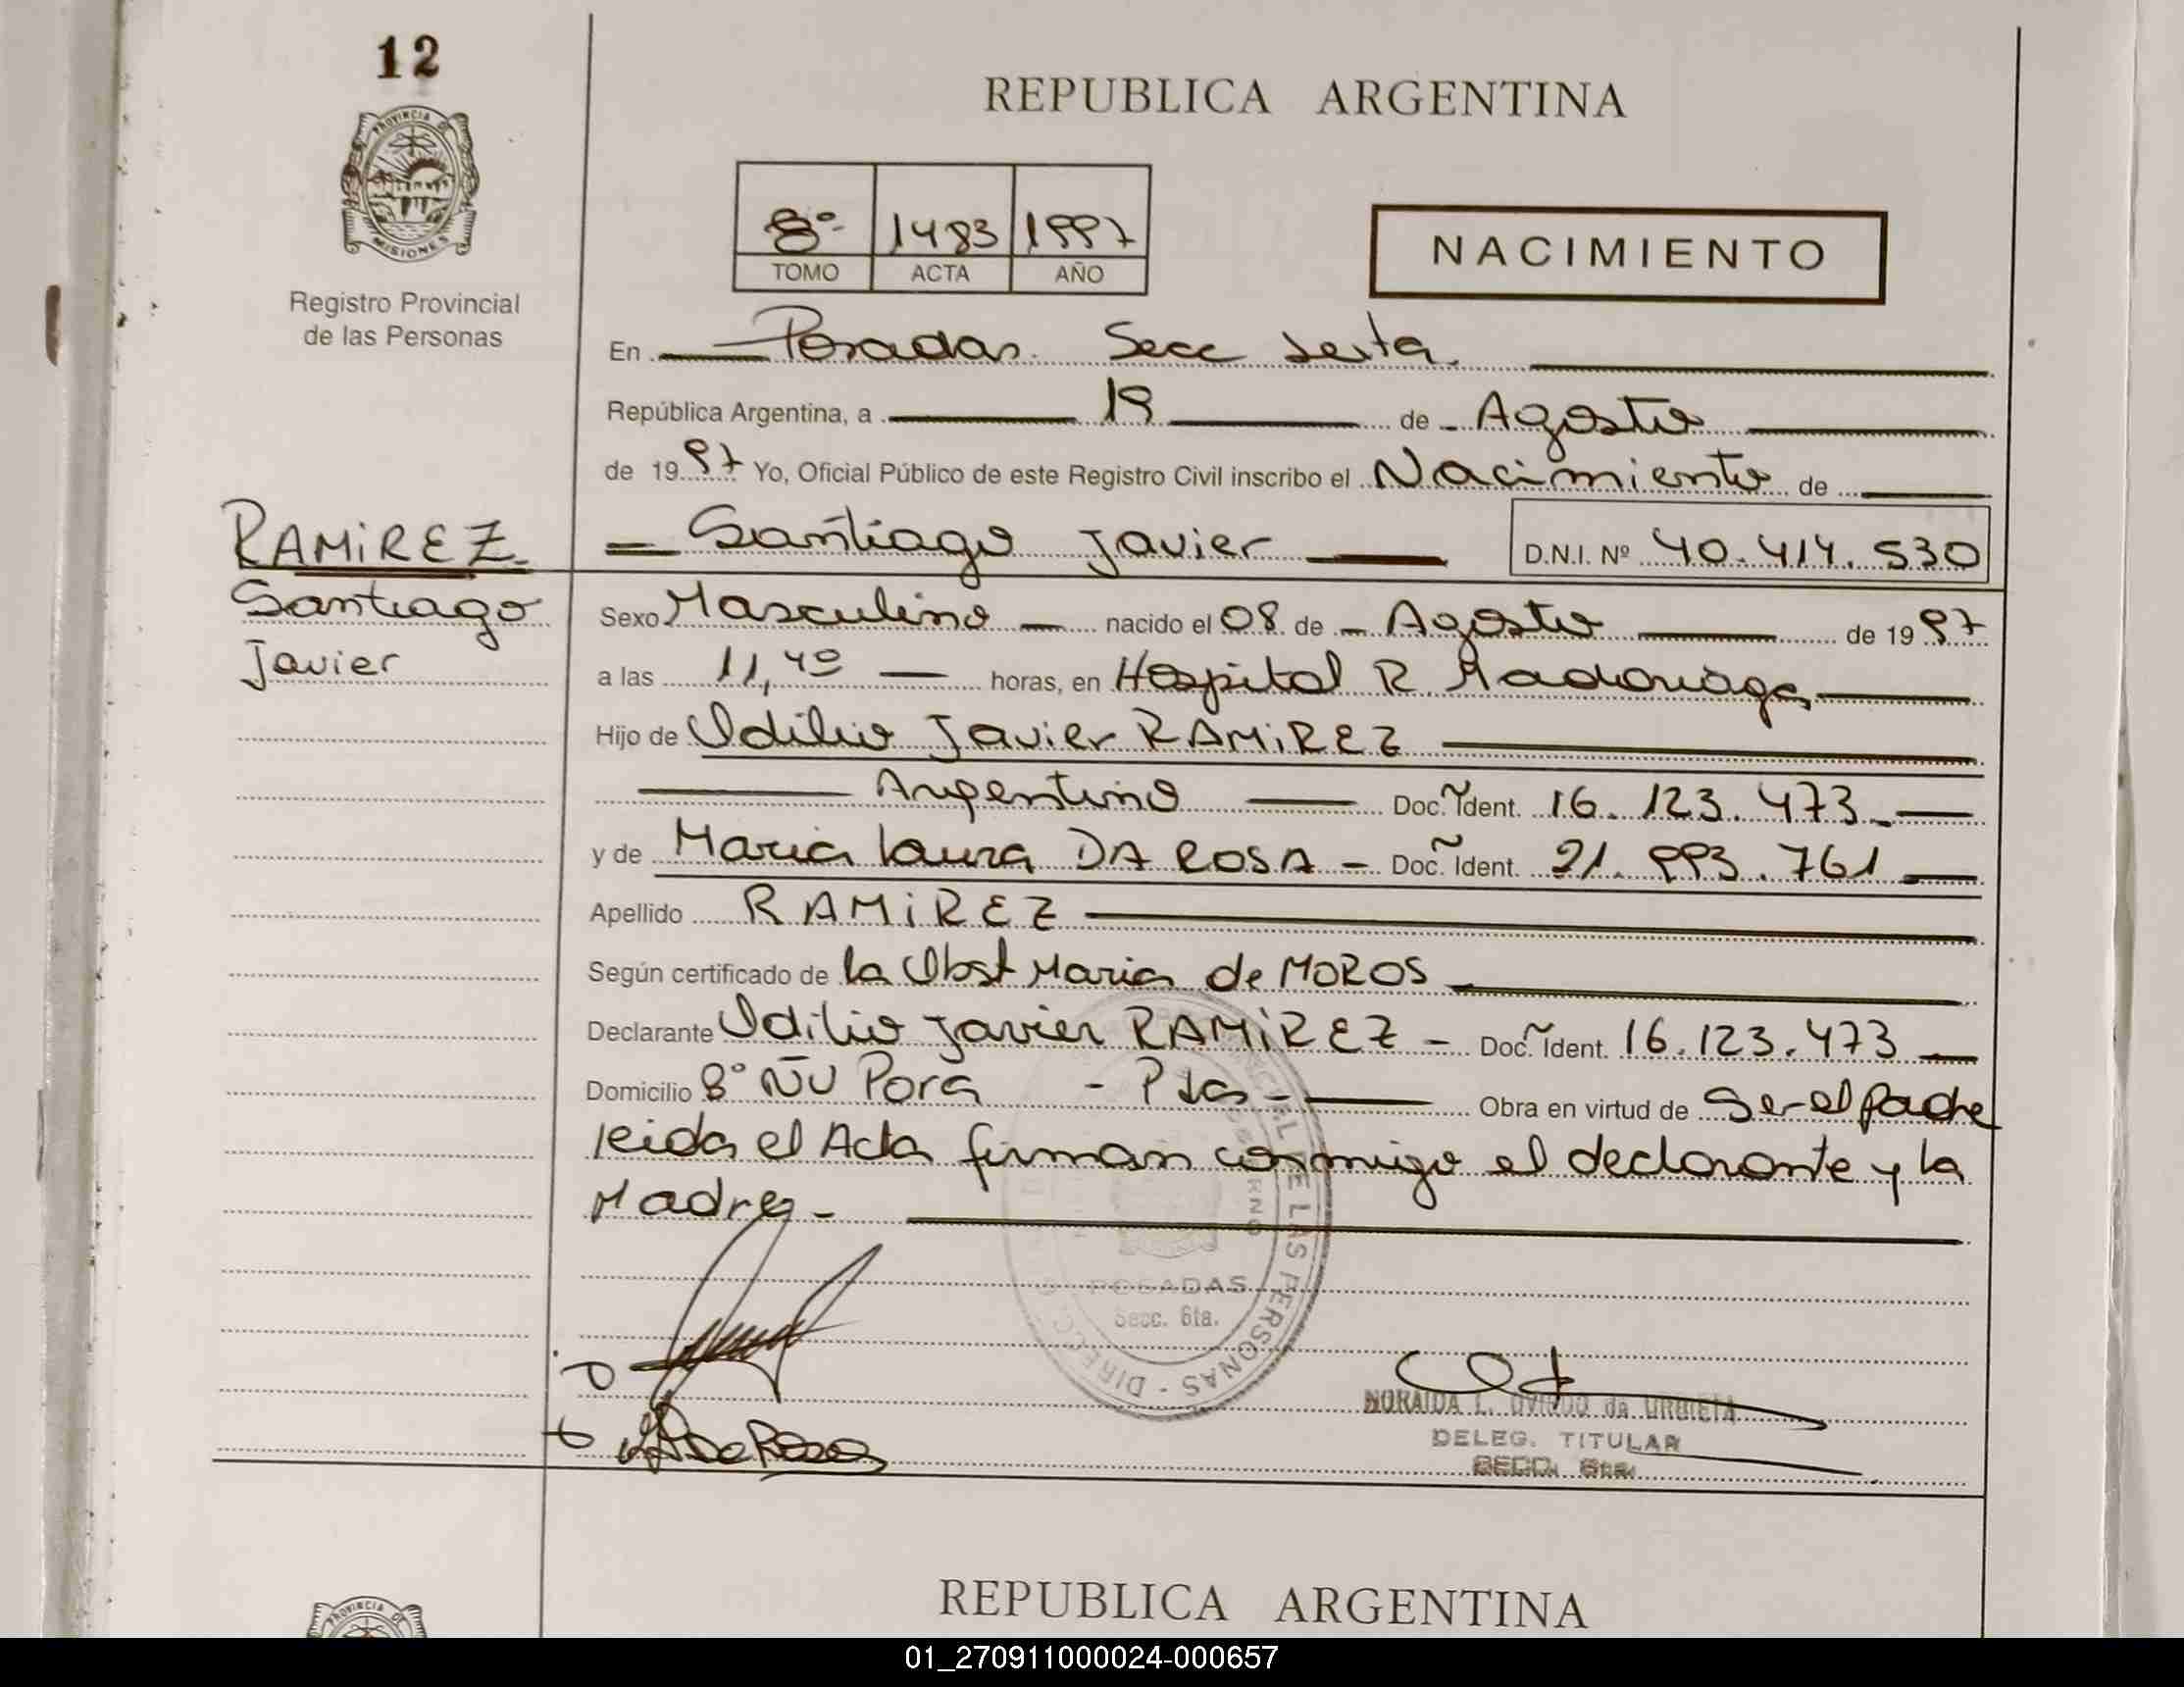 12
PROVINCIA DE
MISIONES
Registro Provincial
de las Personas
REPUBLICA ARGENTINA
8º 1483 1997
TOMO ACTA AÑO
NACIMIENTO
En Posadas. Secc Sexta.
República Argentina, a 19 de Agosto
de 1997 Yo, Oficial Público de este Registro Civil inscribo el Nacimiento de
RAMIREZ
Santiago
Javier
Santiago Javier D.N.I. Nº 40.414.530
Sexo Masculino nacido el 08 de Agosto de 1997
a las 11,40 horas, en Hospital R. Madariaga
Hijo de Odilio Javier RAMIREZ
Argentino Doc. Ident. 16.123.473
y de Maria Laura DA ROSA - Doc. Ident. 21.993.761
Apellido RAMIREZ
Según certificado de la Obst Maria de MOROS
Declarante Odilio Javier RAMIREZ - Doc. Ident. 16.123.473
Domicilio Bº ÑU Porá - Pdas - Obra en virtud de Ser el padre
leida el Acta firman conmigo el declarante y la
Madre -
DE LAS PERSONAS - DIRECC
POSADAS
Secc. 6ta.
NORAIDA L. OVIEDO de URBIETA
DELEG. TITULAR
SECC. 6ta.
PROVINCIA DE
REPUBLICA ARGENTINA
01_270911000024-000657